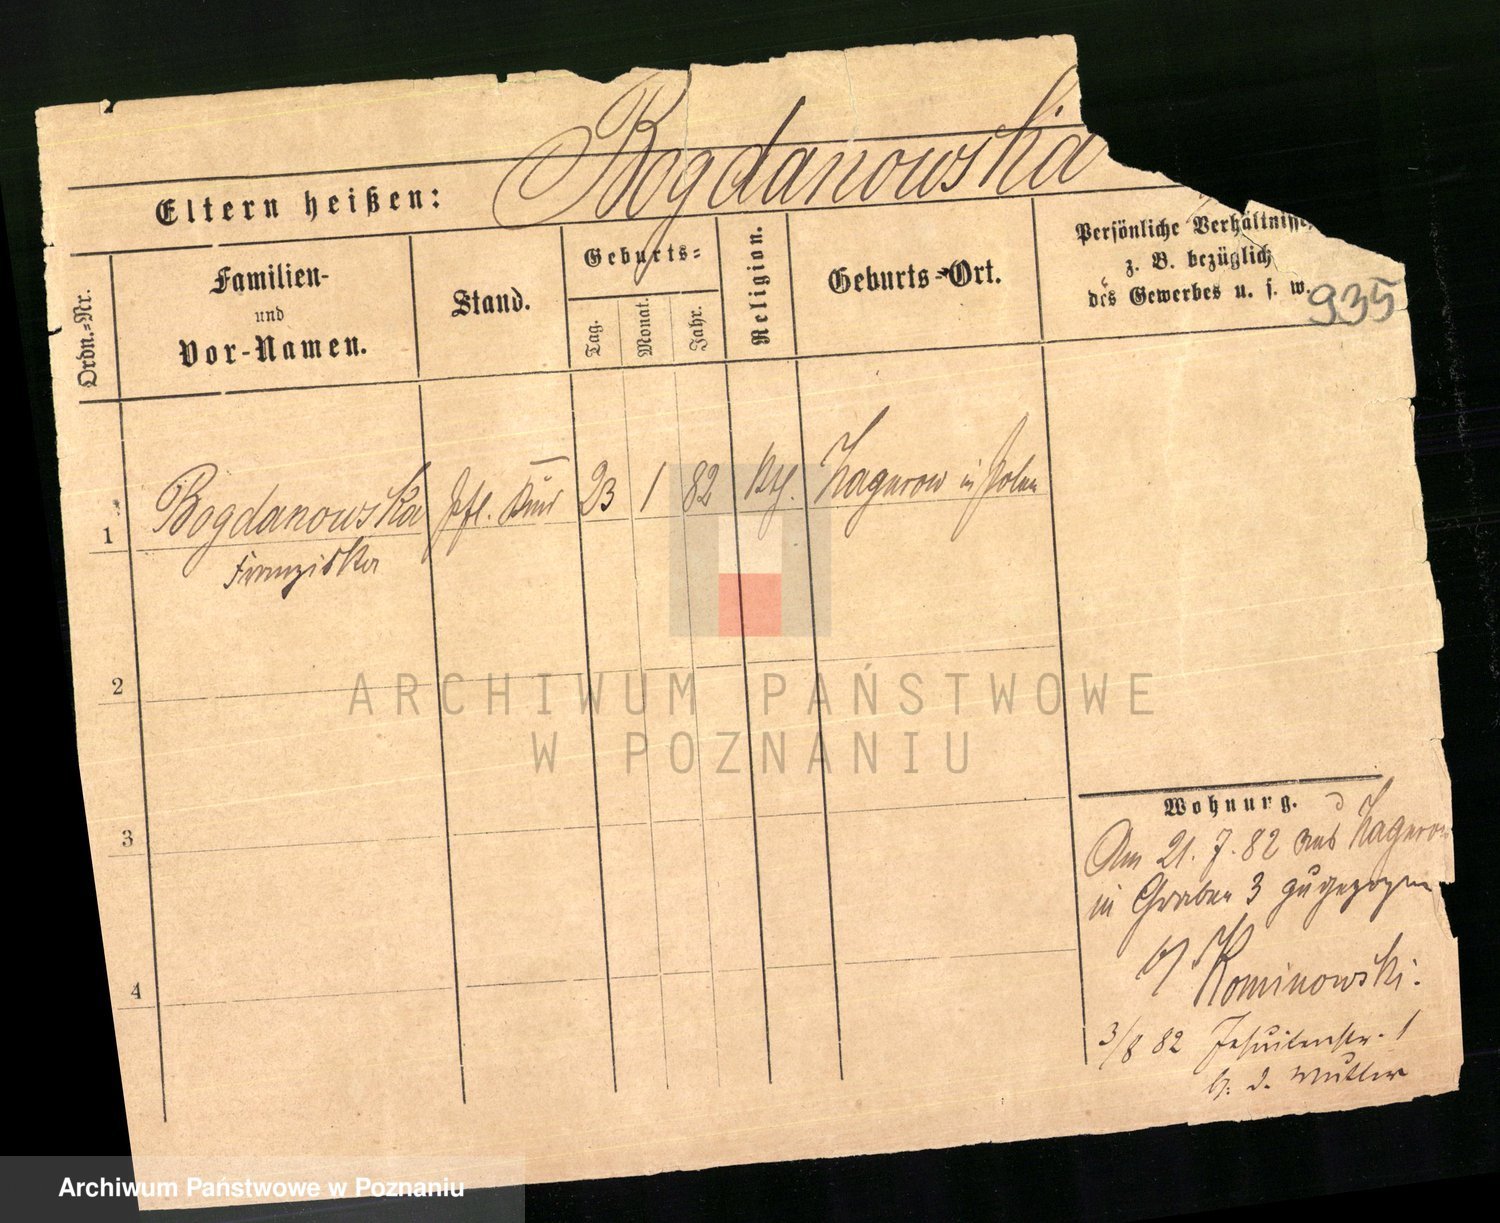 Bogdanowska
Eltern heißen:
Ordn.-Nr.
Familien-
und
Vor-Namen.
Stand.
Geburts-
Tag.
Monat.
Jahr.
Religion.
Geburts-Ort.
Persönliche Verhältnisse,
z. B. bezüglich
des Gewerbes u. s. w.
935
1
Bogdanowska
Pfl. Kind
23
1
82
Kth.
Zagurow in Polen
Franziska
2
ARCHIWUM PAŃSTWOWE
W POZNANIU
3
4
Wohnung.
Am 21. 7. 82 aus Zagurow
in Graben 3 zugezogen
b/ Kominowski.
3/8 82 Jesuitenstr. 1
b. d. Mutter
Archiwum Państwowe w Poznaniu